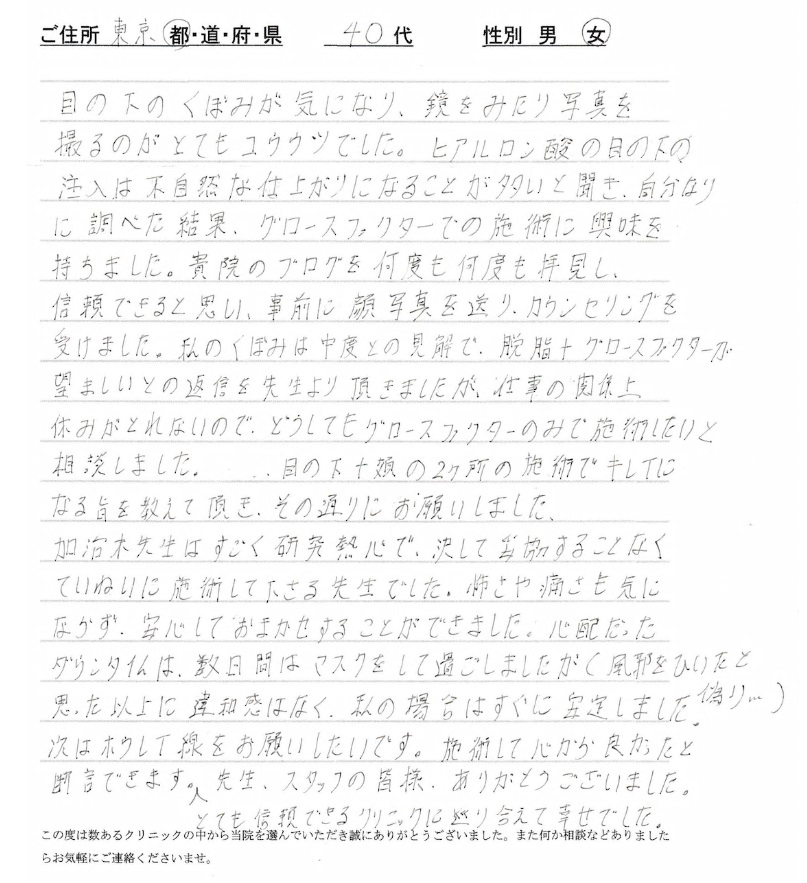 ご住所 東京 都・道・府・県 40代 性別 男 女
目の下のくぼみが気になり、鏡をみたり写真を
撮るのがとてもユウウツでした。ヒアルロン酸の目の下の
注入は不自然な仕上がりになることが多いと聞き、自分なり
に調べた結果、グロースファクターでの施術に興味を
持ちました。貴院のブログを何度も何度も拝見し、
信頼できると思い、事前に顔写真を送り、カウンセリングを
受けました。私のくぼみは中度との見解で、脱脂+グロースファクターが
望ましいとの返信を先生より頂きましたが、仕事の関係上
休みがとれないので、どうしてもグロースファクターのみで施術したいと
相談しました。 ..目の下+頬の2ヶ所の施術でキレイに
なる旨を教えて頂き、その通りにお願いしました、
加治木先生はすごく研究熱心で、決して妥協することなく
ていねいに施術して下さる先生でした。怖さや痛さも気に
ならず、安心しておまかせすることができました。心配だった
ダウンタイムは、数日間はマスクをして過ごしましたが(風邪をひいたと
偽り…)
思った以上に違和感はなく、私の場合はすぐに安定しました。
次はホウレイ線をお願いしたいです。施術して心から良かったと
断言できます。先生、スタッフの皆様、ありがとうございました。
とても信頼できるクリニックに巡り合えて幸せでした。
この度は数あるクリニックの中から当院を選んでいただき誠にありがとうございました。また何か相談などありました
らお気軽にご連絡くださいませ。